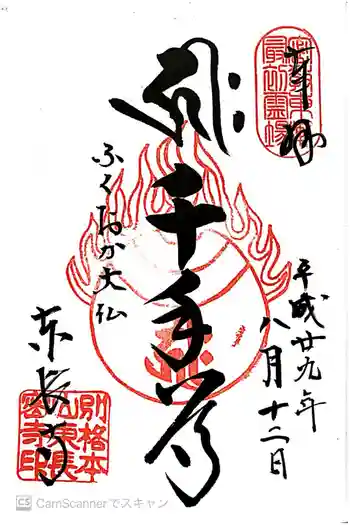 奉拝
密教東漸
最初霊場
平成廿九年
八月十二日
千手尊
ふくおか大仏
東長寺
別格本
山東長
密寺印
CS CamScannerでスキャン